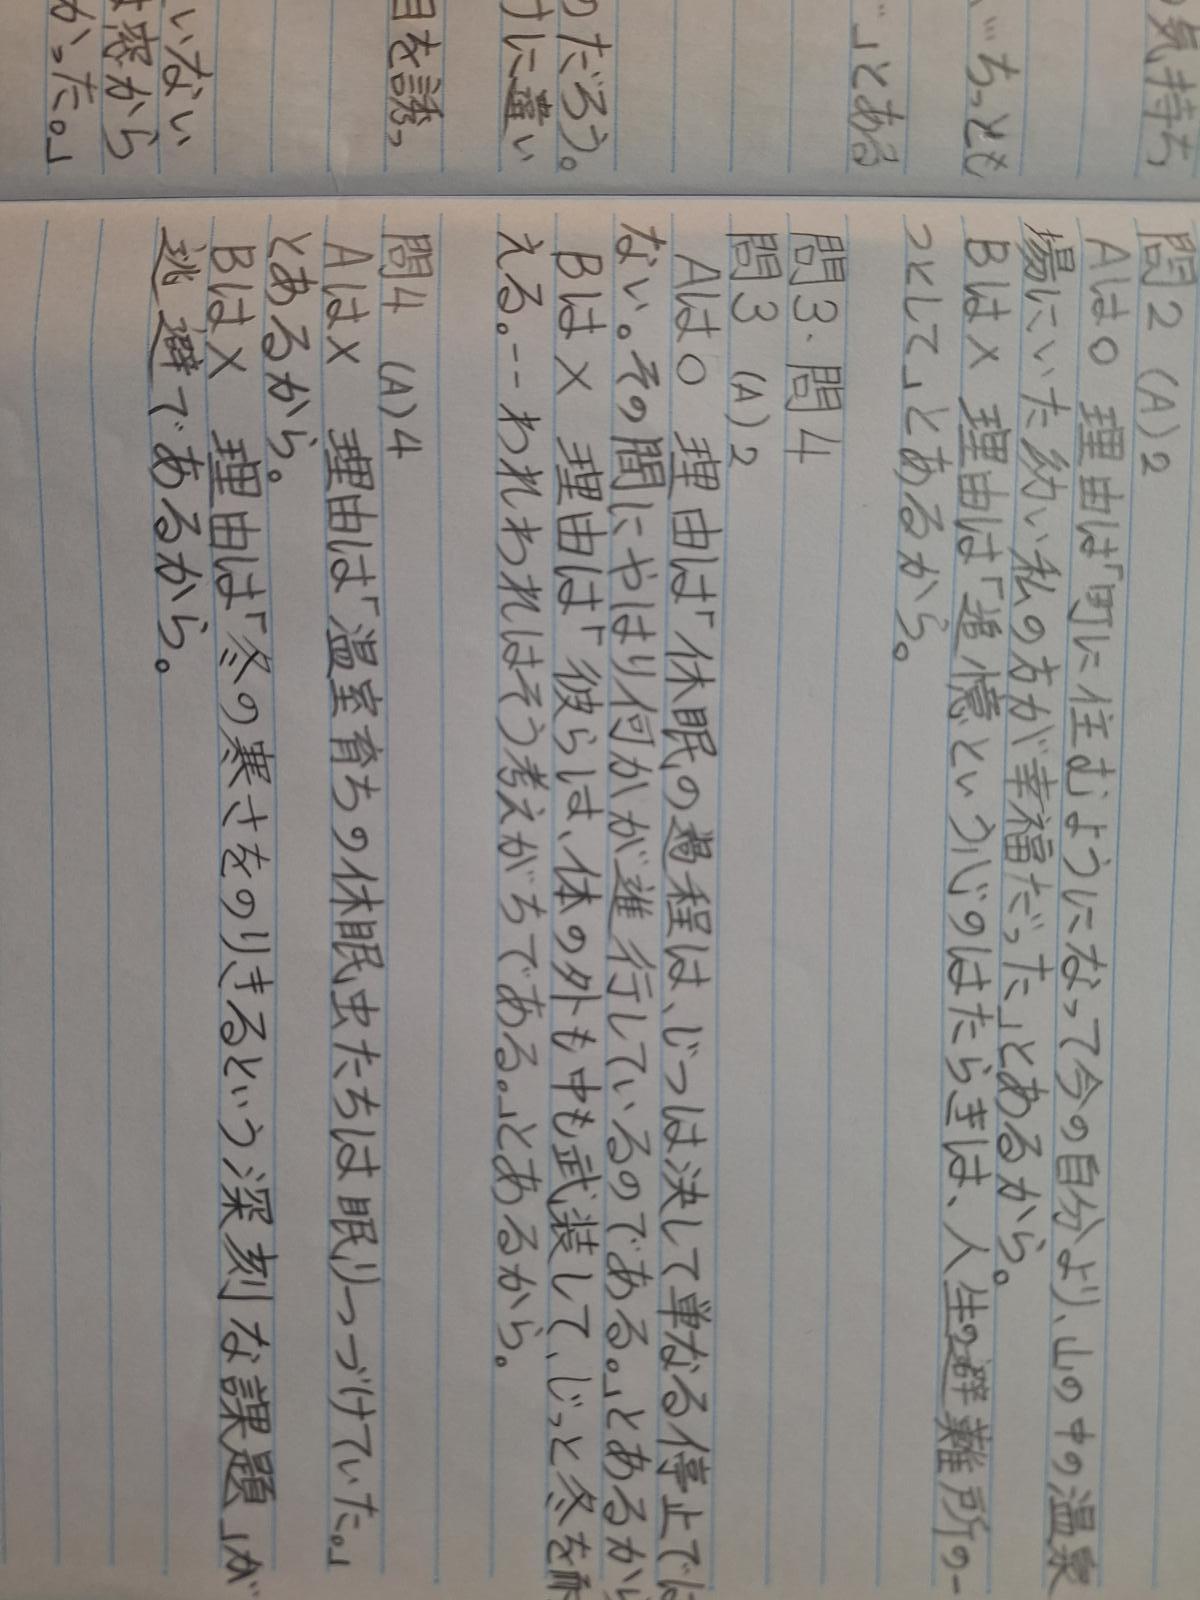 気持ち
ちっとも
」とある
のだろう。
けに違い
目を誘っ
いない
から
かった。」
問2 (A)2
Aは○ 理由は「町に住むようになって今の自分より、山の中の温泉
場にいた幼い私の方が幸福だった」とあるから。
Bは× 理由は「追憶という心のはたらきは、人生の避難所の一
つとして」とあるから。
問3・問4
問3 (A)2
Aは○ 理由は「休眠の過程は、じつは決して単なる停止では
ない。その間にやはり何かが進行しているのである。」とあるから
Bは× 理由は「彼らは、体の外も中も武装して、じっと冬を耐
える。--われわれはそう考えがちである。」とあるから。
問4 (A)4
Aは× 理由は「温室育ちの休眠虫たちは眠りつづけていた。」
とあるから。
Bは× 理由は「冬の寒さをのりきるという深刻な課題」が
逃避であるから。